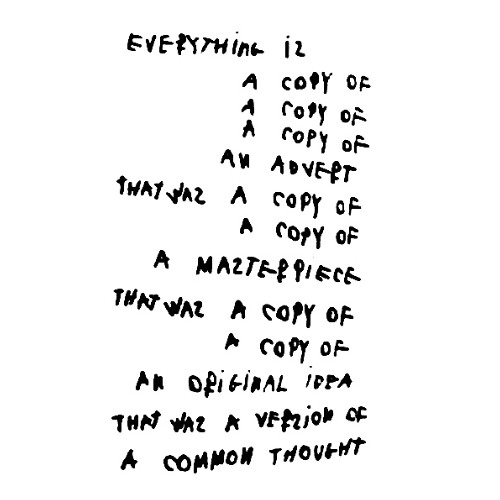 EVERYTHING IS
A COPY OF
A COPY OF
A COPY OF
AN ADVERT
THAT WAS A COPY OF
A COPY OF
A MASTERPIECE
THAT WAS A COPY OF
A COPY OF
AN ORIGINAL IDEA
THAT WAS A VERSION OF
A COMMON THOUGHT